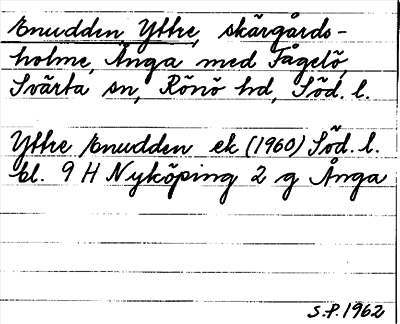 Enudden Yttre, skärgårds-
holme, Ånga med Fågelö,
Svärta sn, Rönö hd, Söd. l.
Yttre Enudden ek (1960) Söd. l.
bl. 9 H Nyköping 2 g Ånga
S.P. 1962